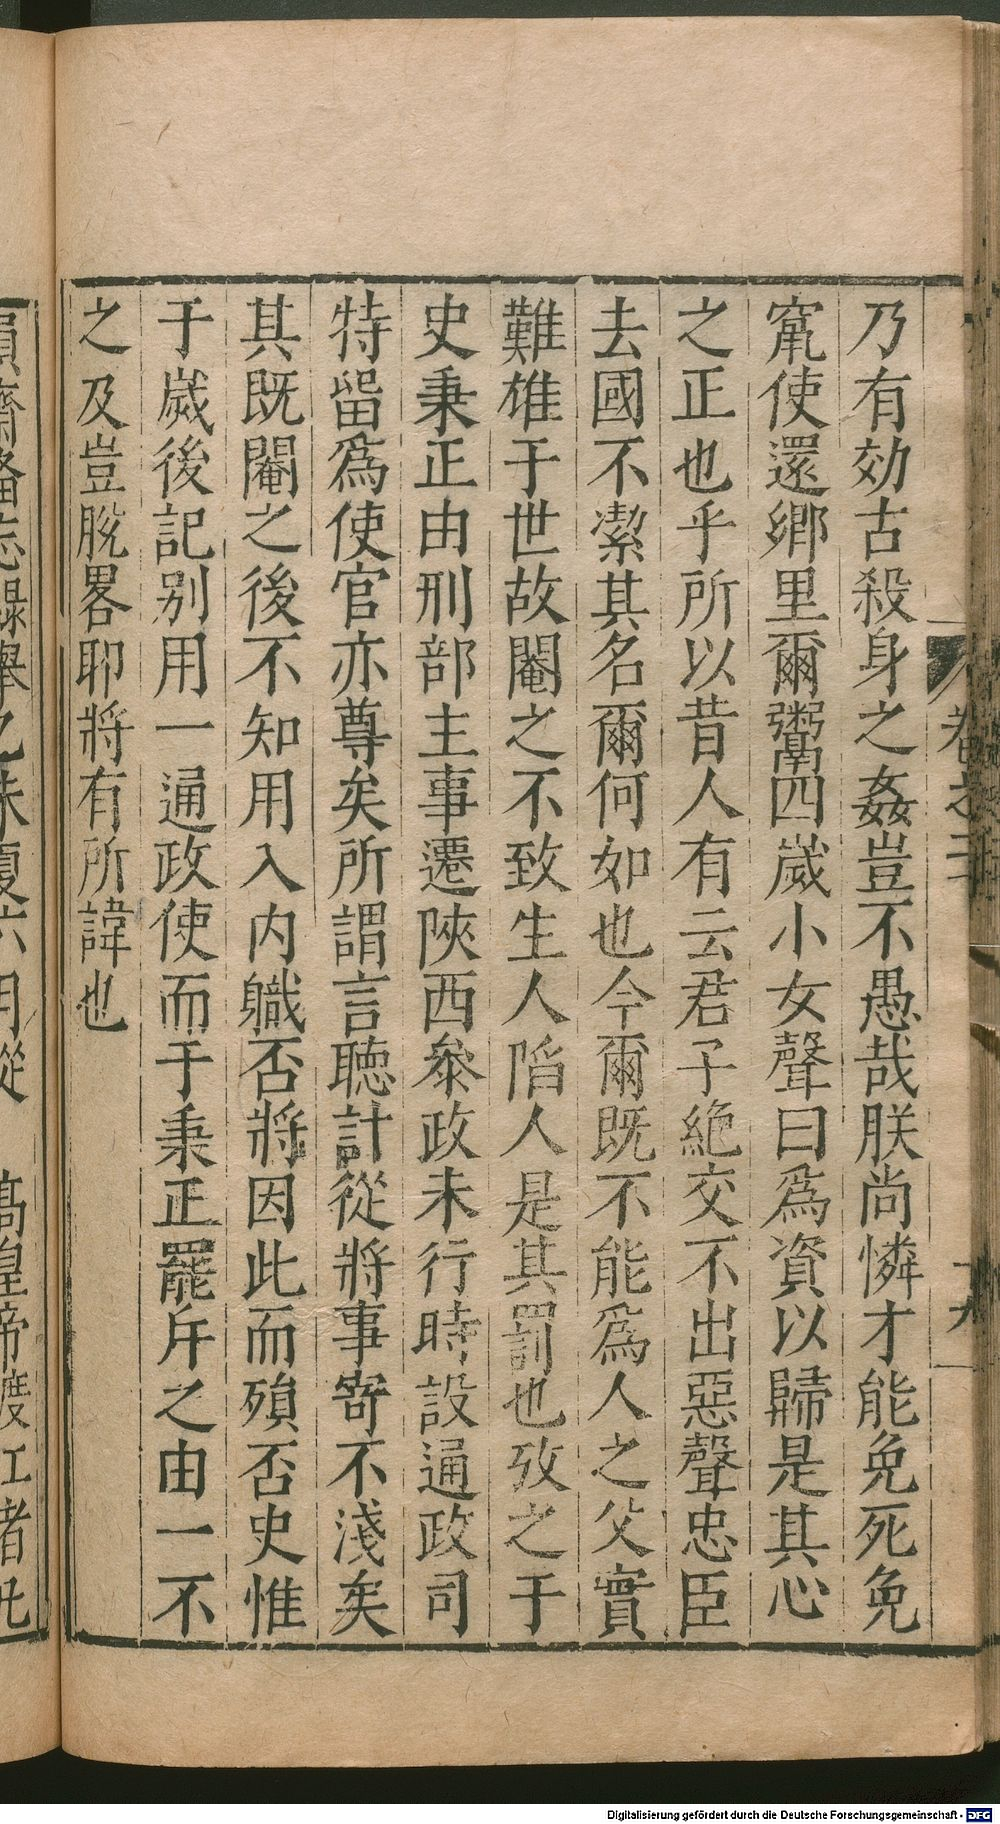 卷之二
十九
乃有効古殺身之姦豈不愚哉朕尚憐才能免死免
竄使還鄉里爾鬻四歲小女聲曰爲資以歸是其心
之正也乎所以昔人有云君子絶交不出惡聲忠臣
去國不潔其名爾何如也今爾既不能爲人之父實
難雄于世故閹之不致生人陷人是其罰也攷之于
史秉正由刑部主事遷陝西叅政未行時設通政司
特留爲使官亦尊矣所謂言聴計從將事寄不淺矣
其既閹之後不知用入内職否將因此而殞否史惟
于歲後記别用一通政使而于秉正罷斥之由一不
之及豈脫畧耶將有所諱也
備忘録舉之朱夏六月從 高皇帝渡江者凡
Digitalisierung gefördert durch die Deutsche Forschungsgemeinschaft - DFG